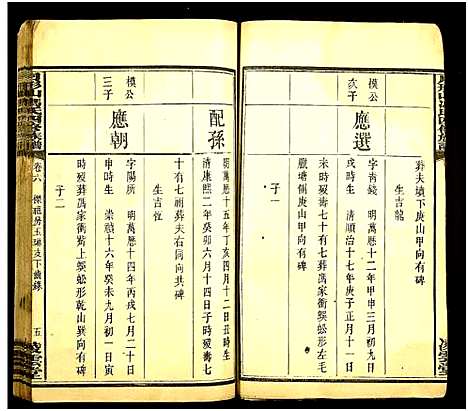 葬夫墳下庚山甲向有碑
生吉龍
模公
次子
應選
字青錢 明萬歷十二年甲申三月初九日
戌時生 清順治十七年庚子正月十一日
未時歿壽七十有七葬萬家衝蜈蚣形左毛
廳塘側庚山甲向有碑
子一
配孫
明萬歷十五年丁亥四月十二日丑時生
清康熙二年癸卯六月十四日子時歿壽七
十有七祔葬夫右同向共碑
生吉恆
模公
三子
應朝
字陽所 明萬歷十四年丙戌七月二十日
申時生 崇禎十六年癸未九月初一日寅
時歿葬萬家衝塋上蜈蚣形乾山巽向有碑
子二
卷六
五
凌雲堂